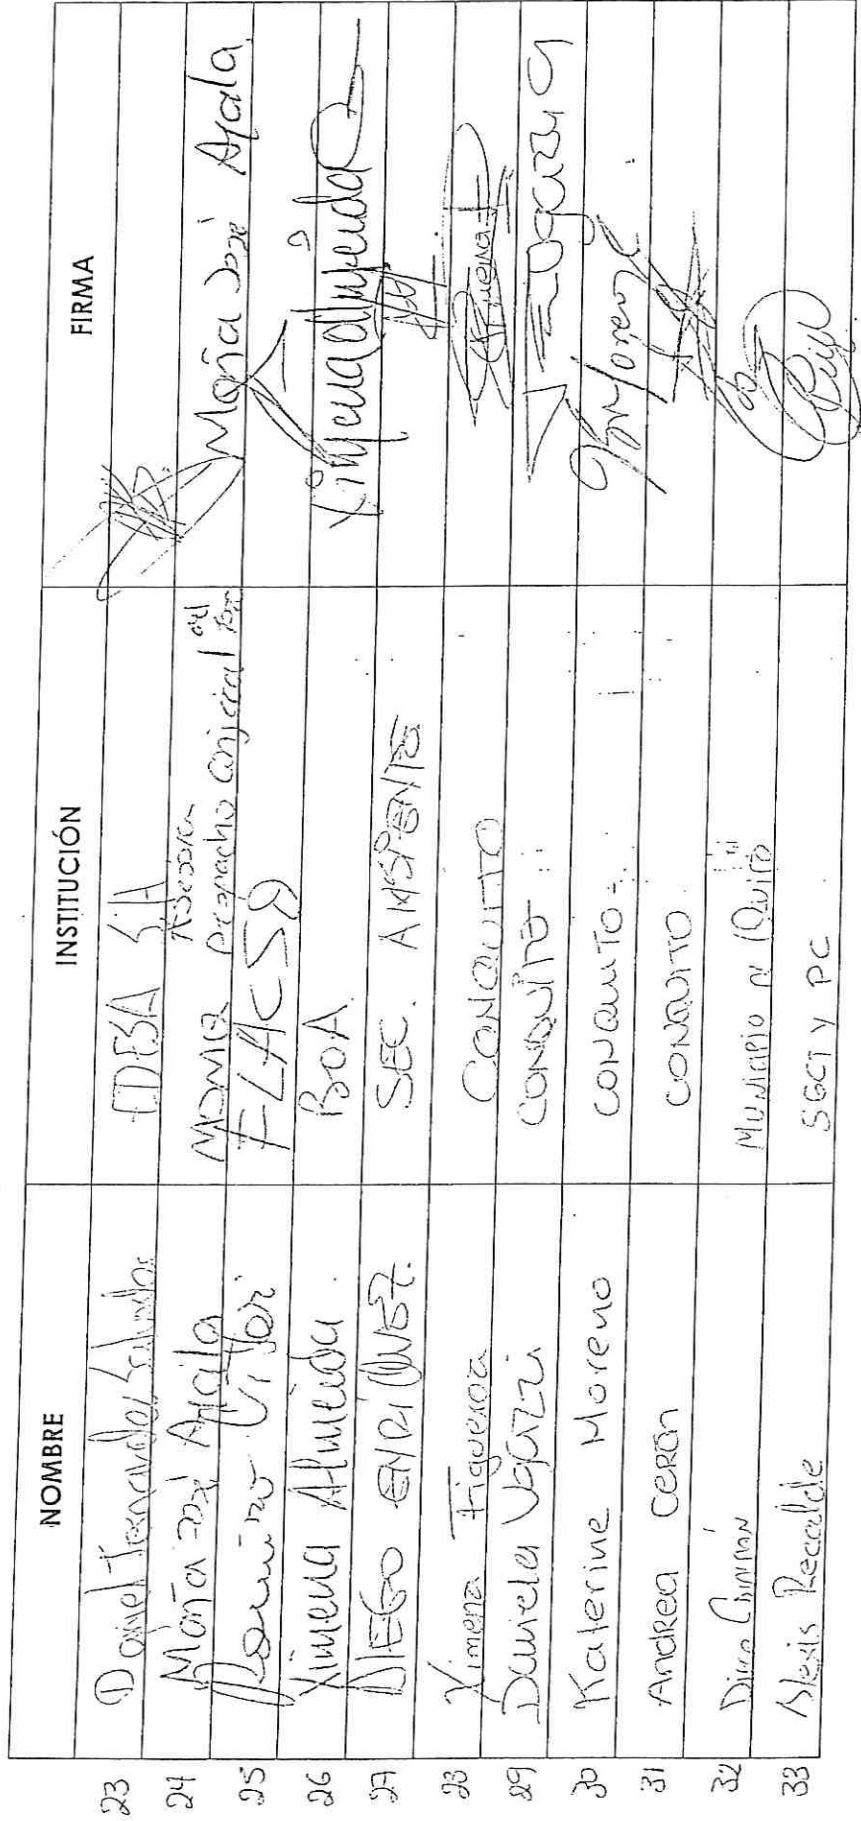 NOMBRE INSTITUCIÓN FIRMA
23 Daniel Fernandez Salvador EDESA S.A
24 María José Ayala MDMQ Asesora Despacho Concejal María José Ayala
25 Ramiro FLACSO
26 Ximena Almeida. BOA. Ximena Almeida
27 DIEGO ENRIQUEZ. SEC. AMBIENTE
28 Ximena Figueroa CONQUITO
29 Daniela Ugazzi CONQUITO
30 Katerine Moreno CONQUITO
31 Andrea Cerón CONQUITO
32 Municipio de Quito
33 Alexis Recalde SGCT y PC